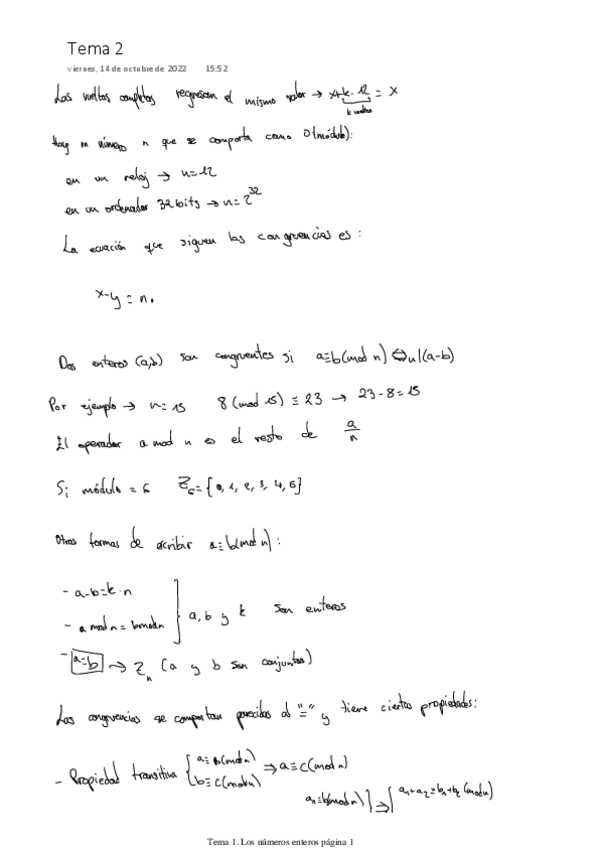 Tema 2
viernes, 14 de octubre de 2022 15:52
Las vueltas completas regresan el mismo valor → x+k·12 = x
k vueltas
Hay un número n que se comporta como 0(módulo):
en un reloj → n=12
en un ordenador 32 bits → n=2^32
La ecuación que siguen las congruencias es:
x-y = n.
Dos enteros (a,b) son congruentes si a≡b(mod n) ⇔ n|(a-b)
Por ejemplo → n=15 8(mod 15) ≡ 23 → 23-8=15
El operador a mod n es el resto de a/n
Si módulo = 6 Z₆={0,1,2,3,4,5}
Otras formas de escribir a≡b(mod n):
- a-b=k·n
- a mod n = b mod n } a, b y k son enteros
- a=b → Zn (a y b son conjuntos)
Las congruencias se comportan parecidas al "=" y tiene ciertas propiedades:
- Propiedad transitiva { a≡b(mod n) b≡c(mod n) ⇒ a≡c(mod n)
a₁≡b₁(mod n) } ⇒ { a₁+a₂≡b₁+b₂(mod n)
Tema 1. Los números enteros página 1